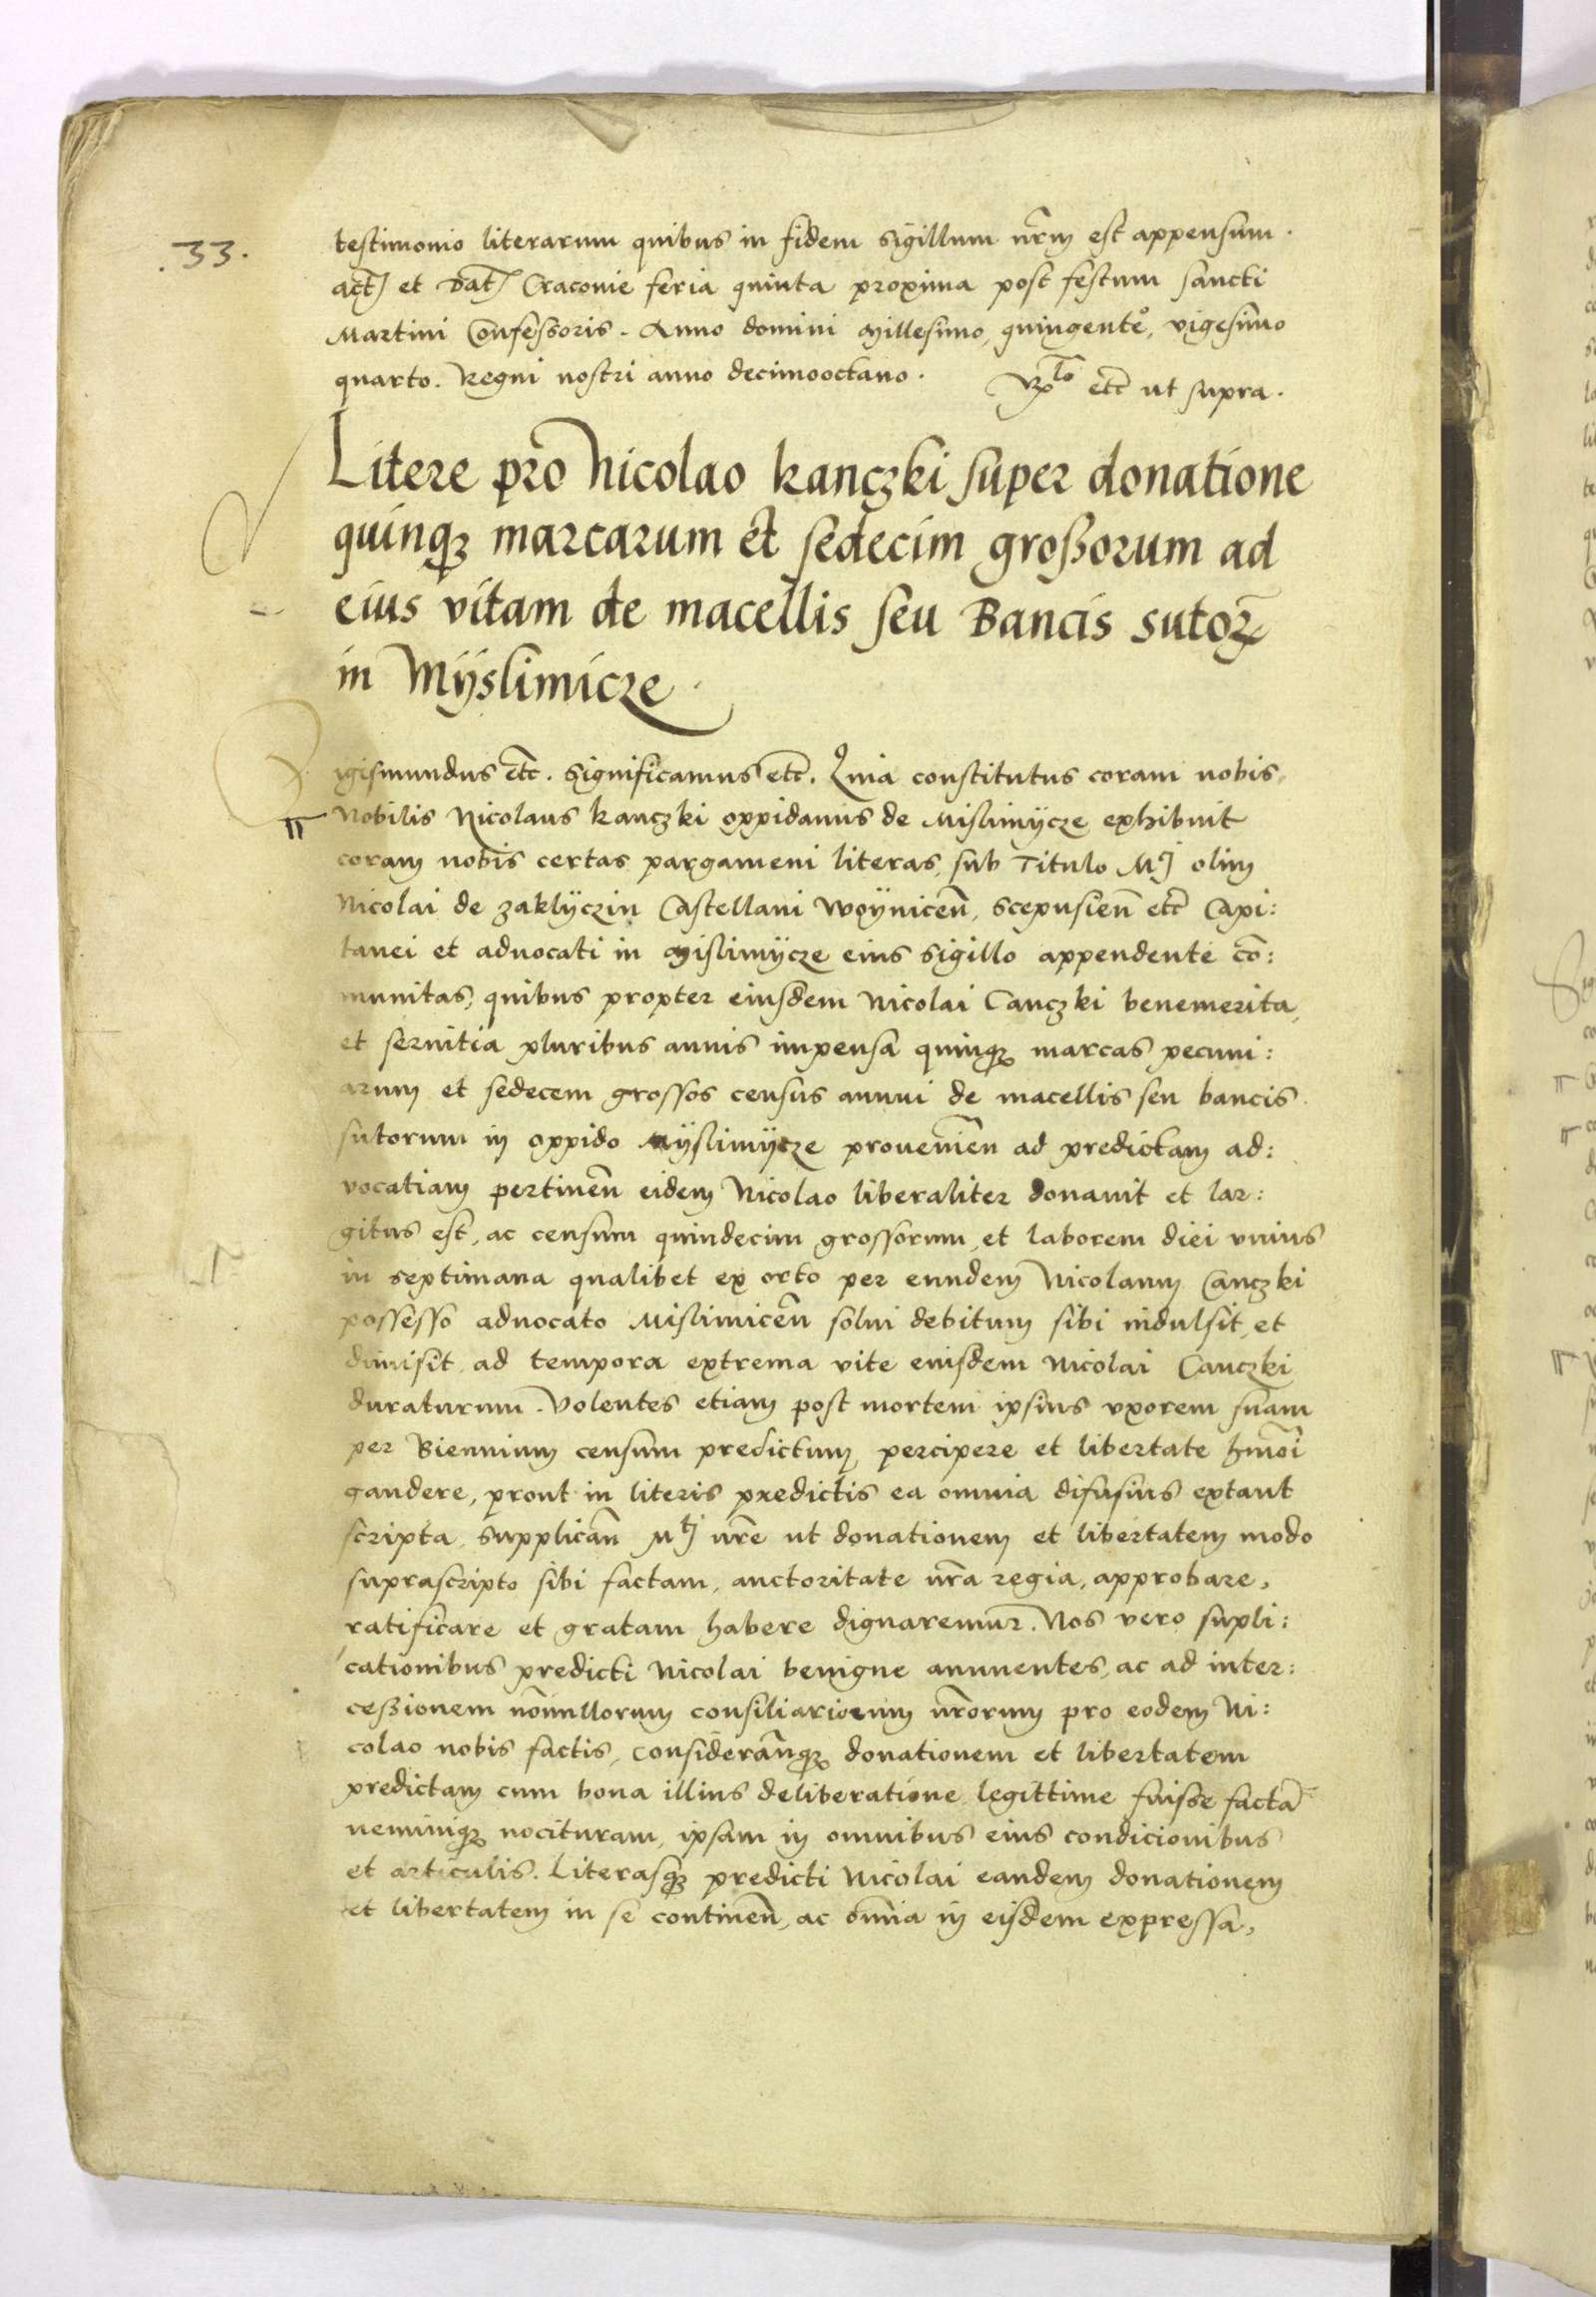 .33.
testimonio literarum quibus in fidem sigillum nr̃m est appensum.
act) et Dat) Cracovie feria quinta proxima post festum sancti
Martini Confessoris. Anno domini Millesimo, quingente°, vigesimo
quarto. Regni nostri anno decimooctavo. Rela^to etc̃ ut supra.
Litere pro Nicolao kanczki super donatione
quinqꝫ marcarum et sedecim großorum ad
eius vitam de macellis seu Bancis sutorꝝ
in Mÿslimicze.
igismundus etc̃. significamus etc̃. Quia constitutus coram nobis
Nobilis Nicolaus kanczki oppidanus de Mislimÿcze exhibuit
coram nobis certas pargameni literas, sub Titulo M) olim
Nicolai de zaklÿczin Castellani Woÿnicen̄, scepusien̄ etc̃ Capi:
tanei et advocati in Mislimÿcze eius sigillo appendente cō:
munitas, quibus propter eiusdem Nicolai Canczki benemerita,
et servitia pluribus annis impensa quinqꝫ marcas pecuni:
arum et sedecem grossos census annui de macellis seu bancis
sutorum in oppido Mÿslimÿcze provenien̄ ad predictam ad:
vocatiam pertinen̄ eidem Nicolao liberaliter donavit et lar:
gitus est, ac censum quindecim grossorum, et laborem diei unius
in septimana qualibet ex orto per eundem Nicolaum Canczki
possesso advocato Mislimicen̄ solvi debitum sibi indulsit, et
dimisit ad tempora extrema vite eiusdem Nicolai Canczki
duraturum. Volentes etiam post mortem ipsius uxorem suam
per Biennium censum predictum percipere et libertate hmōi
gaudere, prout in literis predictis ea omnia difusius extant
scripta, supplican̄ Mt) nr̃e ut donationem et libertatem modo
suprascripto sibi factam, auctoritate nr̃a regia, approbare,
ratificare et gratam habere dignaremur. Nos vero supli:
cationibus predicti Nicolai benigne annuentes, ac ad inter:
ceßionem nōnullorum consiliariorum nr̃orum pro eodem Ni:
colao nobis factis, considerān̄qꝫ donationem et libertatem
predictam cum bona illius deliberatione legittime fuisse factā
neminiqꝫ nocituram, ipsam in omnibus eius condicionibus
et articulis. Literasqꝫ predicti Nicolai eandem donationem
et libertatem in se continen̄, ac om̄ia in eisdem expressa,